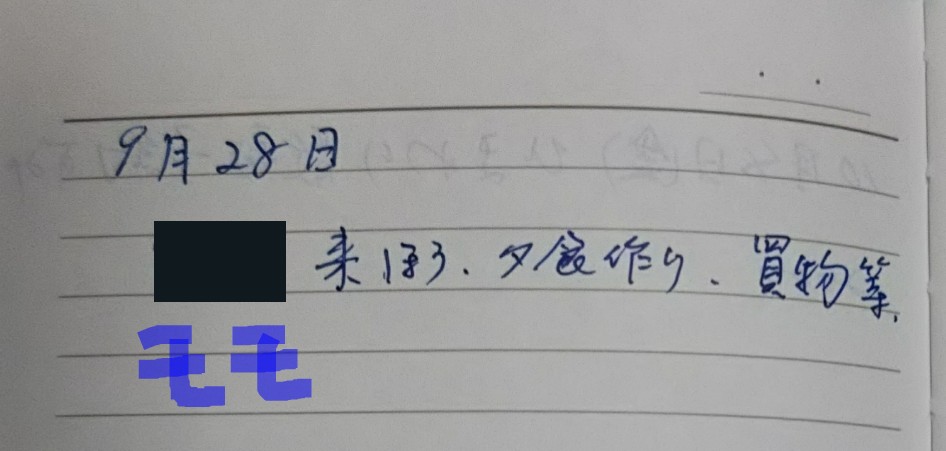 9月28日
来ほう、夕食作り、買物等、
モモ